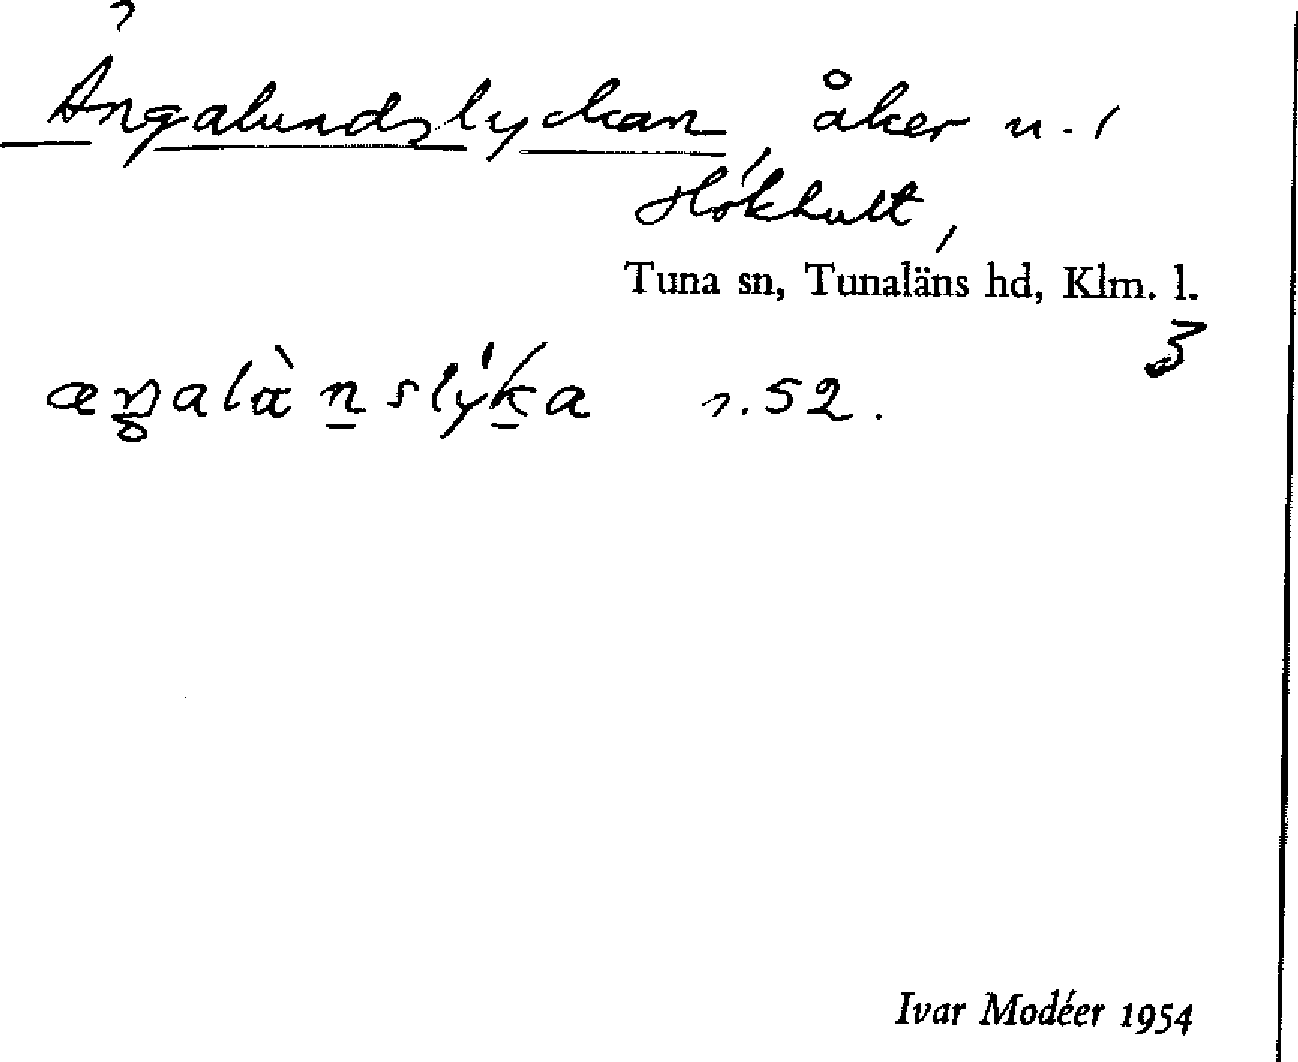 Ängalundslyckan, åker n. i
Hökhult,
Tuna sn, Tunaläns hd, Klm. l.
3
æŋalàn̠slýk̠a r. 52.
Ivar Modéer 1954